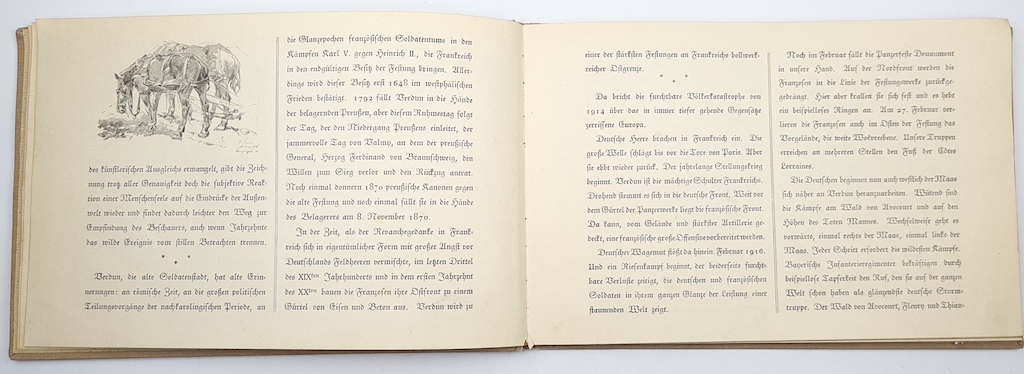 des künstlerischen Ausgleichs ermangelt, gibt die Zeich-
nung trotz aller Genauigkeit doch die subjektive Reak-
tion einer Menschenseele auf die Eindrücke der Außen-
welt wieder und findet dadurch leichter den Weg zur
Empfindung des Beschauers, auch wenn Jahrzehnte
das wilde Ereignis vom stillen Betrachten trennen.
* * *
Verdun, die alte Soldatenstadt, hat alte Erin-
nerungen: an römische Zeit, an die großen politischen
Teilungsvorgänge der nachkarolingischen Periode, an
die Glanzepochen französischen Soldatentums in den
Kämpfen Karl V. gegen Heinrich II., die Frankreich
in den endgültigen Besitz der Festung bringen. Aller-
dings wird dieser Besitz erst 1648 im westphälischen
Frieden bestätigt. 1792 fällt Verdun in die Hände
der belagernden Preußen, aber diesem Ruhmestag folgt
der Tag, der den Niedergang Preußens einleitet, der
jammervolle Tag von Valmy, an dem der preußische
General, Herzog Ferdinand von Braunschweig, den
Willen zum Sieg verlor und den Rückzug antrat.
Noch einmal donnern 1870 preußische Kanonen gegen
die alte Festung und noch einmal fällt sie in die Hände
des Belagerers am 8. November 1870.
In der Zeit, als der Revanchegedanke in Frank-
reich sich in eigentümlicher Form mit großer Angst vor
Deutschlands Feldheeren vermischte, im letzten Drittel
des XIXten Jahrhunderts und in dem ersten Jahrzehnt
des XXten bauen die Franzosen ihre Ostfront zu einem
Gürtel von Eisen und Beton aus. Verdun wird zu
einer der stärksten Festungen an Frankreichs bollwerk-
reicher Ostgrenze.
* * *
Da bricht die furchtbare Völkerkatastrophe von
1914 über das in immer tiefer gehende Gegensätze
zerrissene Europa.
Deutsche Heere brachen in Frankreich ein. Die
große Welle schlägt bis vor die Tore von Paris. Aber
sie ebbt wieder zurück. Der jahrelange Stellungskrieg
beginnt. Verdun ist die mächtige Schulter Frankreichs.
Drohend stemmt es sich in die deutsche Front. Weit vor
dem Gürtel der Panzerwerke liegt die französische Front.
Da kann, vom Gelände und starker Artillerie ge-
deckt, eine französische große Offensive vorbereitet werden.
Deutscher Wagemut stößt da hinein. Februar 1916.
Und ein Riesenkampf beginnt, der beiderseits furcht-
bare Verluste zeitigt, die deutschen und französischen
Soldaten in ihrem ganzen Glanze der Leistung einer
staunenden Welt zeigt.
Noch im Februar fällt die Panzerfeste Douaumont
in unsere Hand. Auf der Nordfront werden die
Franzosen in die Linie der Festungswerke zurückge-
gedrängt. Hier aber krallen sie sich fest und es hebt
ein beispielloses Ringen an. Am 27. Februar ver-
lieren die Franzosen auch im Osten der Festung das
Vorgelände, die weite Woëvreebene. Unsere Truppen
erreichen an mehreren Stellen den Fuß der Côtes
Lorraines.
Die Deutschen beginnen nun auch westlich der Maas
sich näher an Verdun heranzuarbeiten. Wütend sind
die Kämpfe am Wald von Avocourt und auf den
Höhen des Toten Mannes. Wechselweise geht es
vorwärts, einmal rechts der Maas, einmal links der
Maas. Jeder Schritt erfordert die wildesten Kämpfe.
Bayerische Infanterieregimenter bekräftigen durch
beispiellose Tapferkeit den Ruf, den sie auf der ganzen
Welt schon haben als glänzendste deutsche Sturm-
truppe. Der Wald von Avocourt, Fleury und Thiau-